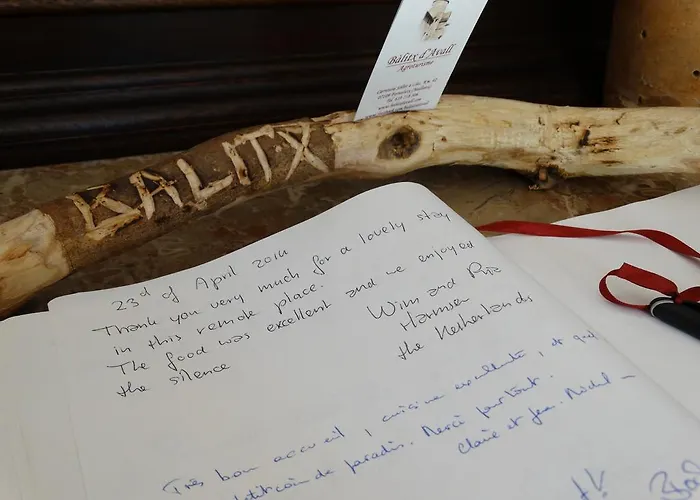 BALITX
Bàlitx d'Avall
Agroturisme
23rd of April 2014
Thank you very much for a lovely stay
in this remote place.
The food was excellent and we enjoyed
the silence
Wim and Ria
Harmsen
the Netherlands
Très bon accueil, cuisine excellente, et quel
petit coin de paradis. Merci pour tout.
Claire et Jean-Michel